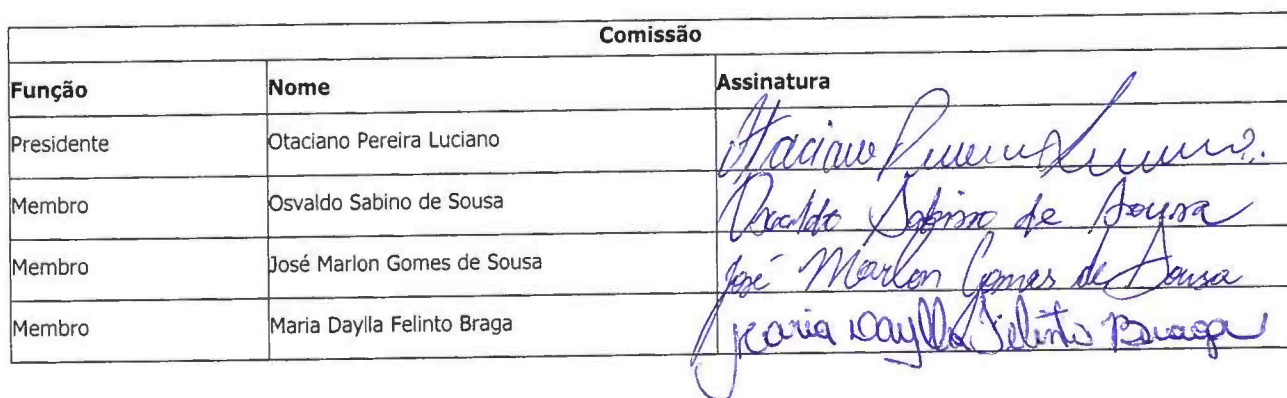 Comissão
Função Nome Assinatura
Presidente Otaciano Pereira Luciano Otaciano Pereira Luciano.
Membro Osvaldo Sabino de Sousa Osvaldo Sabino de Sousa
Membro José Marlon Gomes de Sousa José Marlon Gomes de Sousa
Membro Maria Daylla Felinto Braga Maria Daylla Felinto Braga